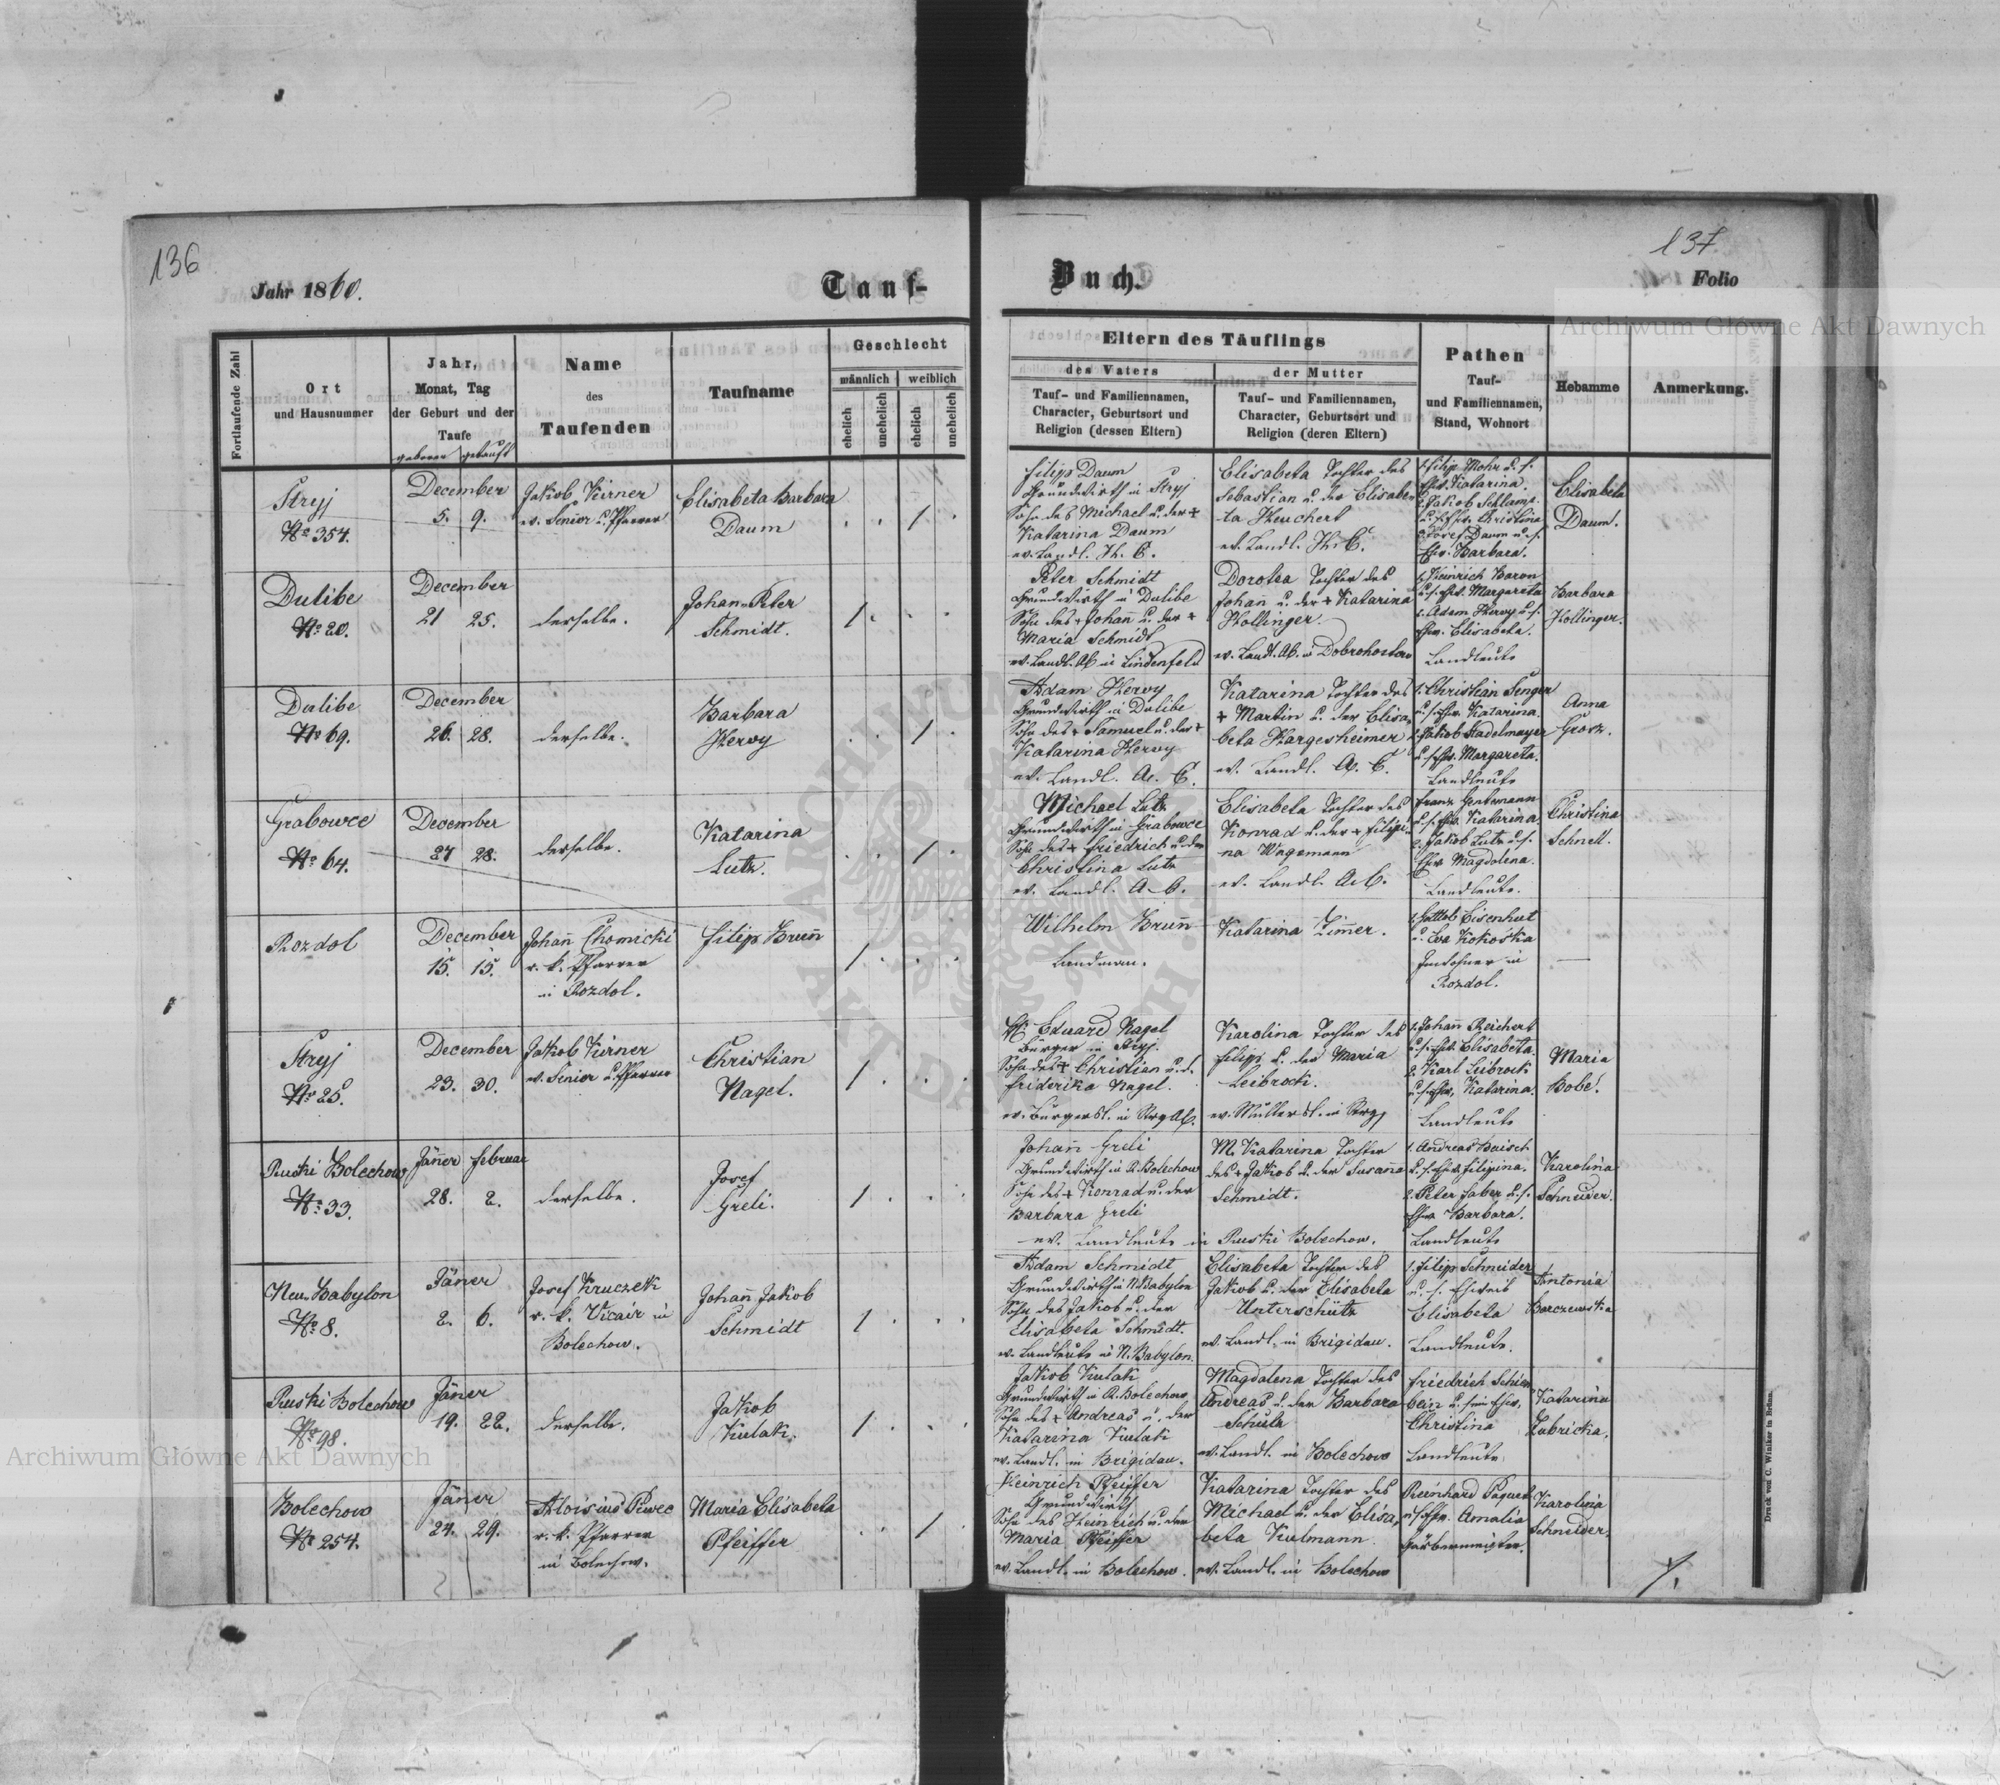 136
Jahr 1860.
Tauf-
Fortlaufende Zahl
Ort
und Hausnummer
Jahr,
Monat, Tag
der Geburt und der
Taufe
geboren getauft
Name
des
Taufenden
Taufname
Geschlecht
männlich weiblich
ehelich
unehelich
ehelich
unehelich
Stryj
No 354.
December
5. 9.
Jakob Kirner
ev. Senior u. Pfarrer
Elisabeta Barbara
Daum
Dulibe
No 20.
December
21 25.
derselbe.
Johan Peter
Schmidt.
Dulibe
No 69.
December
26. 28.
derselbe.
Barbara
Hervy
Grabowce
No 64.
December
27 28.
derselbe.
Katarina
Lutz.
Rozdol
December
15. 15.
Johañ Chomicki
r. k. Pfarrer
in Rozdol.
Filip Bruñ
Stryj
No 25.
December
23. 30.
Jakob Kirner
ev. Senior u. Pfarrer
Christian
Nagel.
Ruski Bolechow
No 33.
Jäner Februar
28. 2.
derselbe.
Josef
Greli.
Neu Babylon
No 8.
Jäner
2. 6.
Josef Kruczek
r. k. Vicair in
Bolechow.
Johañ Jakob
Schmidt
Ruski Bolechow
No 98.
Jäner
19. 22.
derselbe.
Jakob
Kulak.
Bolechow
No 254.
Jäner
24. 29.
Aloisius Piwec
r. k. Pfarrer
in Bolechow.
Maria Elisabeta
Pfeiffer
137.
Buch.
Folio
Eltern des Täuflings
des Vaters
Tauf- und Familiennamen,
Character, Geburtsort und
Religion (dessen Eltern)
der Mutter
Tauf- und Familiennamen,
Character, Geburtsort und
Religion (deren Eltern)
Pathen
Tauf-
und Familiennamen,
Stand, Wohnort
Hebamme
Anmerkung.
Filip Daum
Grundwirth in Stryj
Sohn des Michael u. der +
Katarina Daum
ev. Landl. H. C.
Elisabeta Tochter des
Sebastian u. der Elisabe-
ta Heuchert
ev. Landl. H. C.
1. Filip Mohr u. s.
Ehw. Katarina.
2. Jakob Schlamp
u. s. Ehw. Christina
3. Josef Daum u. s.
Ehw. Barbara.
Elisabeta
Daum.
Peter Schmidt
Grundwirth in Dulibe
Sohn des + Johañ u. der +
Maria Schmidt
ev. Landl. AC in Lindenfeld
Dorotea Tochter des
Johañ u. der + Katarina
Hollinger.
ev. Landl. AC. in Dobrohostow
1. Heinrich Baron
u. s. Ehw. Margareta
2. Adam Hervy u. s.
Ehw. Elisabeta.
Landleute
Barbara
Hollinger.
Adam Hervy
Grundwirth in Dulibe
Sohn des + Samuel u. der +
Katarina Hervy
ev. Landl. A. C.
Katarina Tochter des
+ Martin u. der Elisa-
beta Hargesheimer
ev. Landl. A. C.
1. Christian Senger
u. s. Ehw. Katarina.
2. Jakob Kadelmayer
u. s. Ehw. Margareta.
Landleute
Anna
Grosz.
Michael Lutz
Grundwirth in Grabowce
Sohn des + Friedrich u. der
Christina Lutz
ev. Landl. A. C.
Elisabeta Tochter des
Konrad u. der + Filipi-
na Wagemann
ev. Landl. A. C.
Franz Gentemann
u. s. Ehw. Katarina
2. Jakob Lutz u. s.
Ehw. Magdalena.
Landleute.
Christina
Schnell.
Wilhelm Bruñ
Landman.
Katarina Zim̃er.
1. Gottlob Eisenhut
u. Eva Kokośka
Inwohner in
Rozdol.
—
H. Eduard Nagel
Bürger in Stryj.
Sohn des + Christian u. d.
Friderika Nagel.
ev. Bürgersl. in Stryj AC.
Karolina Tochter des
Filip u. der Maria
Leibrock.
ev. Müllersl. in Stryj
1. Johañ Reichert
u. s. Ehw. Elisabeta.
2. Karl Leibrock
u. s. Ehw. Katarina.
Landleute
Maria
Bobe.
Johañ Greli
Grundwirth in R. Bolechow
Sohn des + Konrad u. der
Barbara Greli
ev. Landleute in Ruski Bolechow.
M. Katarina Tochter
des + Jakob u. der Susaña
Schmidt.
1. Andreas Baisch
u. s. Ehw. Filipina.
2. Peter Faber u. s.
Ehw. Barbara.
Landleute
Karolina
Schneider.
Adam Schmidt
Grundwirth in N. Babylon
Sohn des Jakob u. der
Elisabeta Schmidt.
ev. Landleute in N. Babylon.
Elisabeta Tochter des
Jakob u. der Elisabeta
Unterschütz
ev. Landl. in Brigidau.
1. Filip Schneider
u. s. Eheweib
Elisabeta
Landleute.
Antonia
Barczewska
Jakob Kulak
Grundwirth in R. Bolechow
Sohn des + Andreas u. der
Katarina Kulak
ev. Landl. in Brigidau.
Magdalena Tochter des
Andreas u. der Barbara
Schulz
ev. Landl. in Bolechow
Friedrich Schier-
bein u. sein Ehw.
Christina
Landleute
Katarina
Zubricka.
Heinrich Pfeiffer
Grundwirth
Sohn des Heinrich u. der
Maria Pfeiffer
ev. Landl. in Bolechow.
Katarina Tochter des
Michael u. der Elisa-
beta Kulmann
ev. Landl. in Bolechow
Reinhard Paquet
u. s. Ehw. Amalia
Gärbermeister.
Karolina
Schneider.
Druck von C. Winiker in Brünn.
Archiwum Główne Akt Dawnych
Archiwum Główne Akt Dawnych
ARCHIWUM GŁÓWNE AKT DAWNYCH